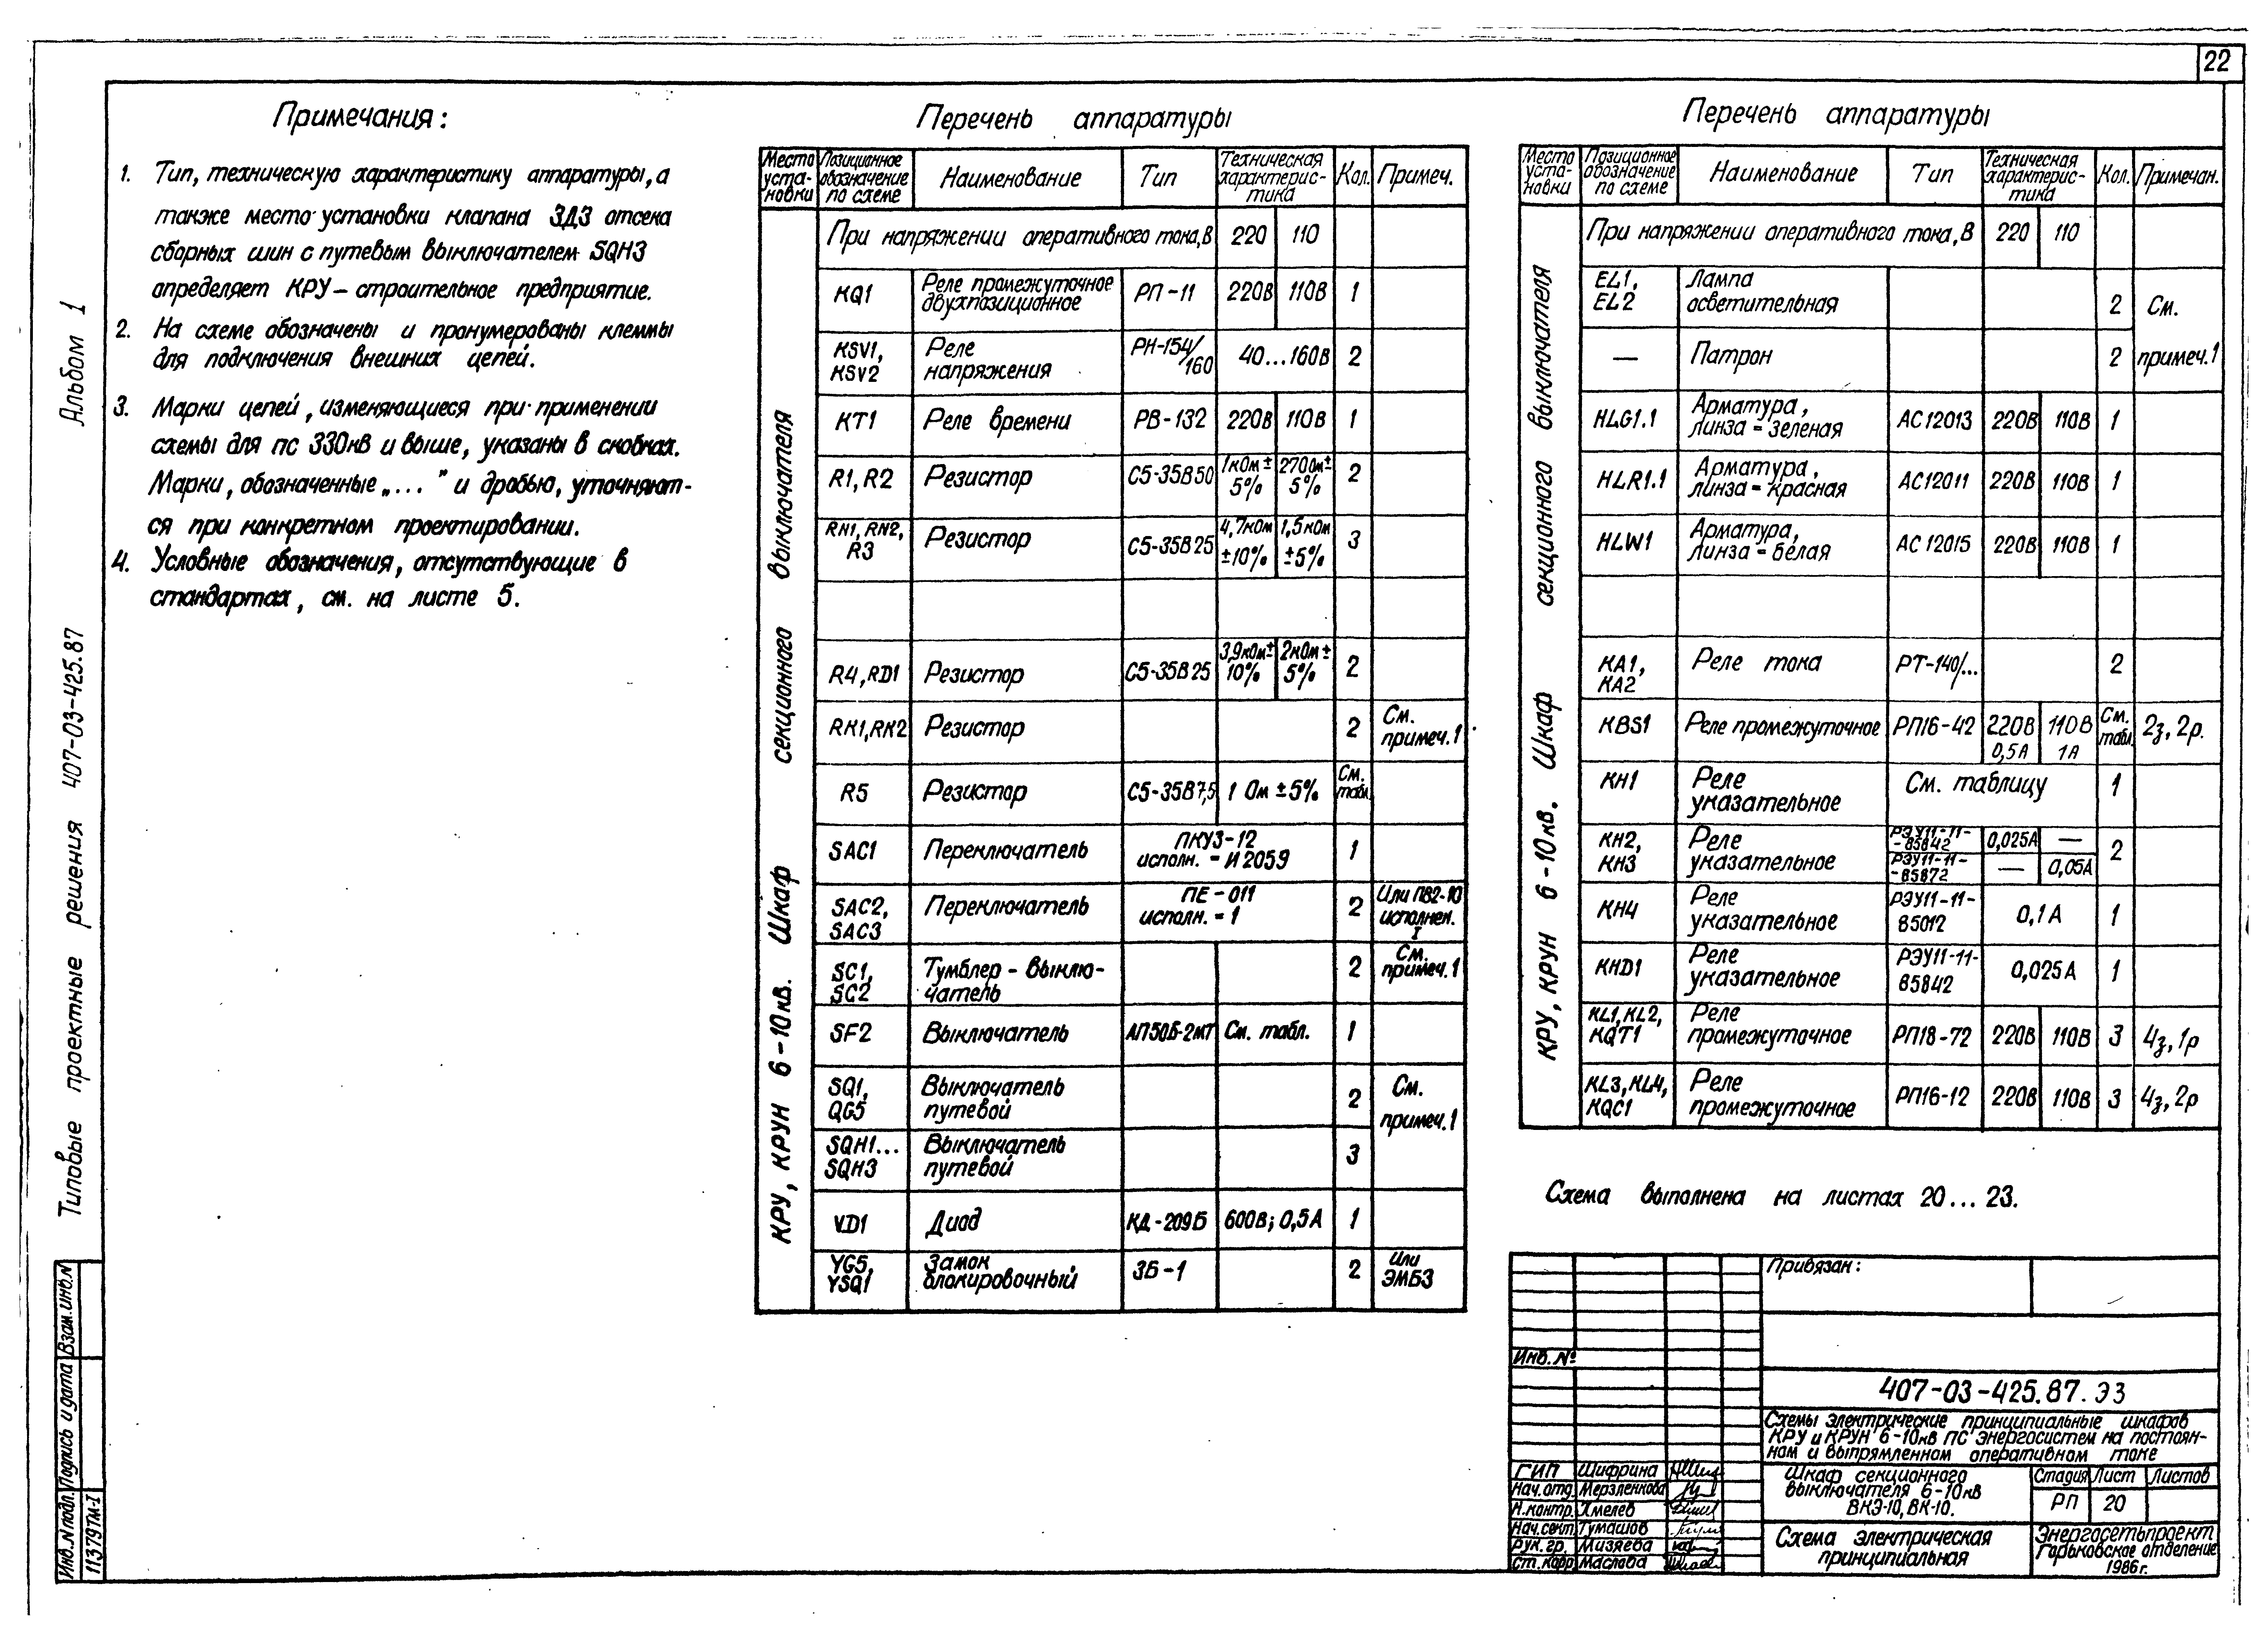 22
Альбом 1
Типовые проектные решения 407-03-425.87
Взам.инв.N
Подпись и дата
Инв.N подл.
11379тм-I
Примечания:
1. Тип, техническую характеристику аппаратуры, а
также место установки клапана ЗДЗ отсека
сборных шин с путевым выключателем SQH3
определяет КРУ – строительное предприятие.
2. На схеме обозначены и пронумерованы клеммы
для подключения внешних цепей.
3. Марки цепей, изменяющиеся при применении
схемы для пс 330кв и выше, указаны в скобках.
Марки, обозначенные „...” и дробью, уточняют-
ся при конкретном проектировании.
4. Условные обозначения, отсутствующие в
стандартах, см. на листе 5.
Перечень аппаратуры
Место уста-новки | Позиционное обозначение по схеме | Наименование | Тип | Техническая характерис-тика | Кол. | Примеч.
КРУ, КРУН 6-10кв. Шкаф секционного выключателя
При напряжении оперативного тока, В | 220 | 110
KQ1 | Реле промежуточное двухпозиционное | РП-11 | 220В | 110В | 1
KSV1, KSV2 | Реле напряжения | РН-154/160 | 40...160В | 2
KT1 | Реле времени | РВ-132 | 220В | 110В | 1
R1, R2 | Резистор | С5-35В50 | 1кОм ± 5% | 270Ом ± 5% | 2
RN1, RN2, R3 | Резистор | С5-35В25 | 4,7кОм ±10% | 1,5кОм ±5% | 3
R4, RD1 | Резистор | С5-35В25 | 3,9кОм ± 10% | 2кОм ± 5% | 2
RK1, RK2 | Резистор | 2 | См. примеч.1
R5 | Резистор | С5-35В7,5 | 1 Ом ±5% | См. табл.
SAC1 | Переключатель | ПКУ3-12 исполн. - И2059 | 1
SAC2, SAC3 | Переключатель | ПЕ-011 исполн. - 1 | 2 | Или ПВ2-10 исполнен. I
SC1, SC2 | Тумблер - выклю-чатель | 2 | См. примеч.1
SF2 | Выключатель | АП50Б-2МТ | См. табл. | 1
SQ1, QG5 | Выключатель путевой | 2 | См. примеч.1
SQH1... SQH3 | Выключатель путевой | 3
VD1 | Диод | КД-209Б | 600В; 0,5А | 1
YG5, YSQ1 | Замок блокировочный | ЗБ-1 | 2 | Или ЭМБЗ
Перечень аппаратуры
Место уста-новки | Позиционное обозначение по схеме | Наименование | Тип | Техническая характерис-тика | Кол. | Примечан.
КРУ, КРУН 6-10кв. Шкаф секционного выключателя
При напряжении оперативного тока, В | 220 | 110
EL1, EL2 | Лампа осветительная | 2 | См.
— | Патрон | 2 | примеч.1
HLG1.1 | Арматура, линза - зеленая | АС12013 | 220В | 110В | 1
HLR1.1 | Арматура, линза - красная | АС12011 | 220В | 110В | 1
HLW1 | Арматура, линза - белая | АС12015 | 220В | 110В | 1
KA1, KA2 | Реле тока | РТ-140/... | 2
KBS1 | Реле промежуточное | РП16-42 | 220В 0,5А | 110В 1А | См. табл. | 2з, 2р.
KH1 | Реле указательное | См. таблицу | 1
KH2, KH3 | Реле указательное | РЭУ11-11-85842 | 0,025А | — | 2
РЭУ11-11-85872 | — | 0,05А
KH4 | Реле указательное | РЭУ11-11-85012 | 0,1А | 1
KHD1 | Реле указательное | РЭУ11-11-85842 | 0,025А | 1
KL1, KL2, KQT1 | Реле промежуточное | РП18-72 | 220В | 110В | 3 | 4з, 1р
KL3, KL4, KQC1 | Реле промежуточное | РП16-12 | 220В | 110В | 3 | 4з, 2р
Схема выполнена на листах 20...23.
Привязан:
Инв.№
407-03-425.87.Э3
Схемы электрические принципиальные шкафов
КРУ и КРУН 6-10кв ПС энергосистем на постоян-
ном и выпрямленном оперативном токе
ГИП Шифрина
Нач.отд. Мерзленкова
Н.контр. Хмелев
Нач.сект. Тумашов
Рук.гр. Мизяева
Шкаф секционного
выключателя 6-10кв
ВКЭ-10, ВК-10.
Стадия Лист Листов
РП 20
Схема электрическая
принципиальная
Энергосетьпроект
Горьковское отделение
1986г.